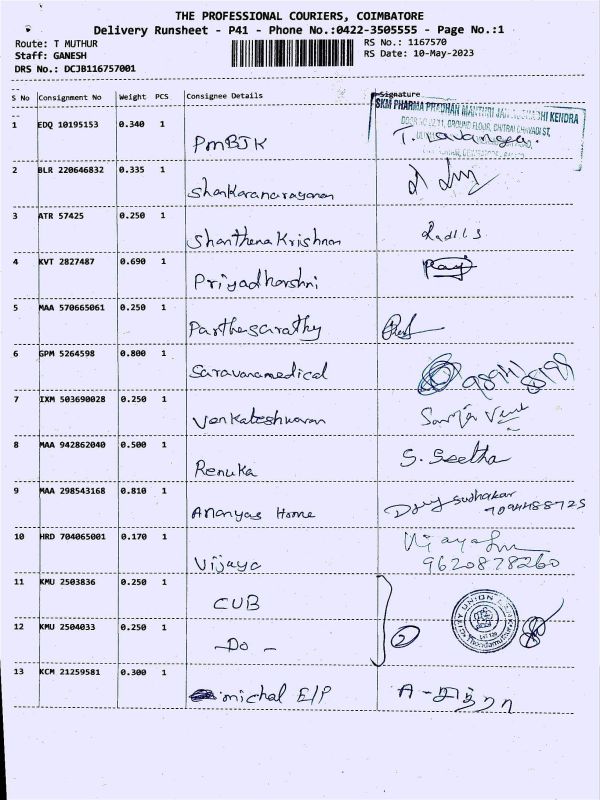 THE PROFESSIONAL COURIERS, COIMBATORE
Delivery Runsheet - P41 - Phone No.:0422-3505555 - Page No.:1
Route: T MUTHUR
RS No.: 1167570
Staff: GANESH
RS Date: 10-May-2023
DRS No.: DCJB116757001
S No Consignment No Weight PCS Consignee Details Signature
SKM PHARMA PRADHAN MANTHRI JAN AUSHADHI KENDRA
1 EDQ 10195153 0.340 1 PMBJK
GROUND FLOOR,
2 BLR 220646832 0.335 1 Shankaranarayanan
3 ATR 57425 0.250 1 Shanthena Krishnan
4 KVT 2827487 0.690 1 Priyadharshni Raj
5 MAA 570665061 0.250 1 Parthasarathy
6 GPM 5264598 0.800 1 Saravanamedical
7 IXM 503690028 0.250 1 Venkateshwaran
8 MAA 942862040 0.500 1 Renuka S. Seetha
9 MAA 298543168 0.810 1 Ananyas Home Sudhakar
10 HRD 704065001 0.170 1 Vijaya
9620878260
11 KMU 2503836 0.250 1 CUB
2
12 KMU 2504033 0.250 1 - Do -
13 KCM 21259581 0.300 1 michal E/P